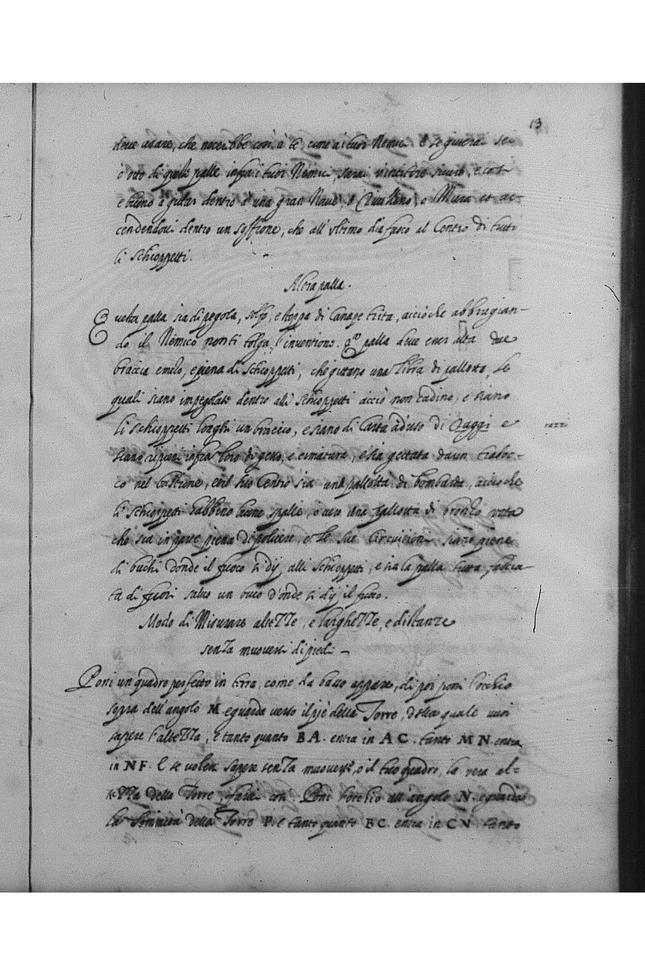 13
deve andare, che nocerebbe così a te, come a i tuoi Nemici. E se gitterai sei
o otto di quelle palle infra i tuoi Nemici sarai vincitore
e buono a gittar dentro a una gran Nave, o Castello, o Mura et ac-
cendendosi dentro un soffione, che all'ultimo dia fuoco al Centro di tutti
li Schioppetti.
Altra palla.
Questa palla sia di pegola, solfo, e stoppa di Canape trita, acciò che abbrugian-
do il Nemico non ti tolga l'inventione. q.a palla deve esser alta due
braccia e mezo, e piena di Schioppetti, che gettano una libra di pallotte, le
quali siano impegolate dentro alli Schioppetti acciò non cadino, e siano
li schioppetti longhi un braccio, e siano di Carta ad uso di Raggi e
razzi
siano ripieni infra loro di gesso, e cimatura, e sia gettata da un traboc-
co nel bastione, e nel suo Centro sia una pallotta di bombarda, acciò che
li Schioppetti habbino buone spalle, o vero una pallotta di bronzo vota
che sia in parte piena di polvere, et le sue siano piene
di buchi donde il fuoco si dij alli Schioppetti, e sia la palla tutta fascia-
ta di fuori salvo un buco d'onde si dij il fuoco.
Modo di Misurare altezze, e larghezze, e distanze
senza muoversi di piedi
Poni un quadro perfetto in terra, come da basso appare, di poi poni l'occhio
sopra dell'angolo M. e guarda verso il piè della Torre, della quale vuoi
sapere l'altezza, e tanto quanto BA. entra in AC. tanto MN. entra
in NF. E se volessi sapere senza muoverti, o il tuo quadro, la vera al-
tezza della Torre, farai così. Poni l'occhio all'angolo N. e guarda
la Sommità della Torre P. e tanto quanto BC. entra in CN. tanto